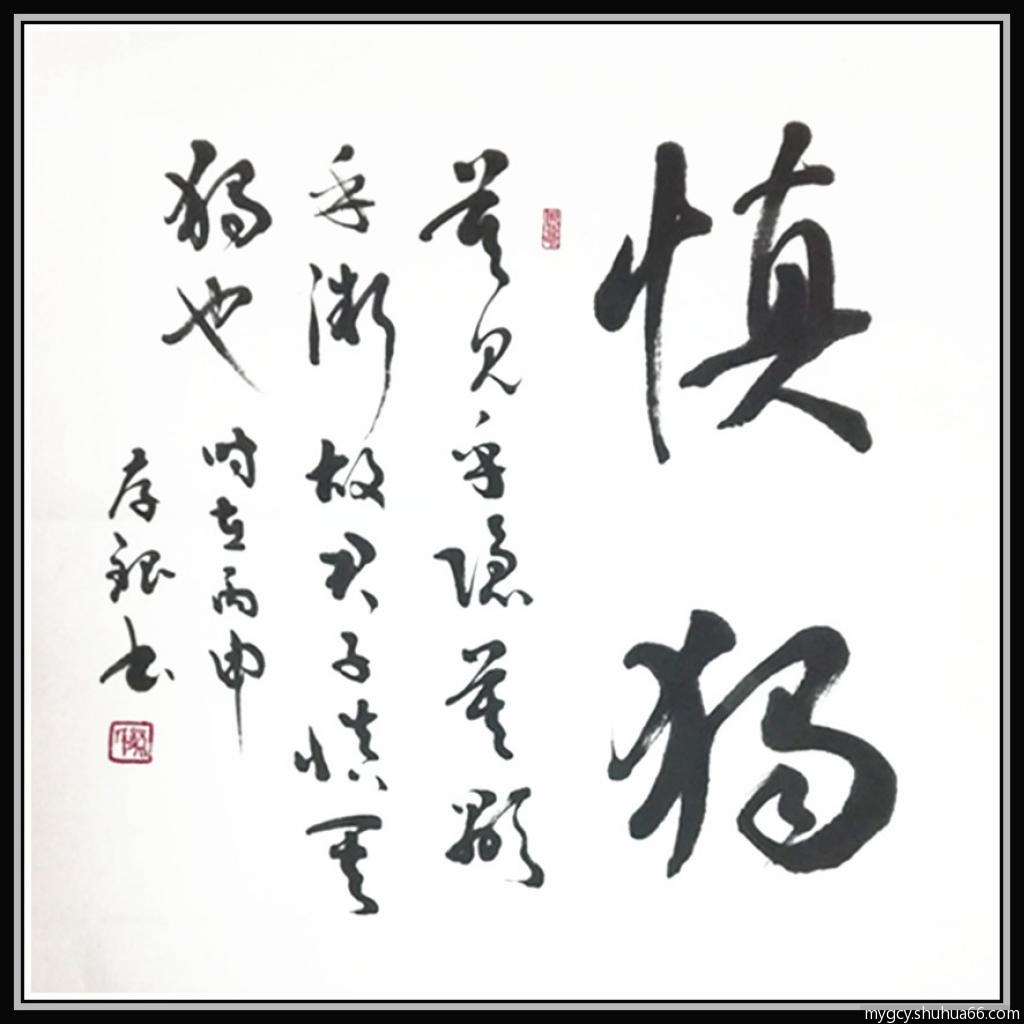 慎獨
莫見乎隱莫顯
乎微故君子慎其
獨也
时在丙申
存银书
mygcy.shuhua66.com